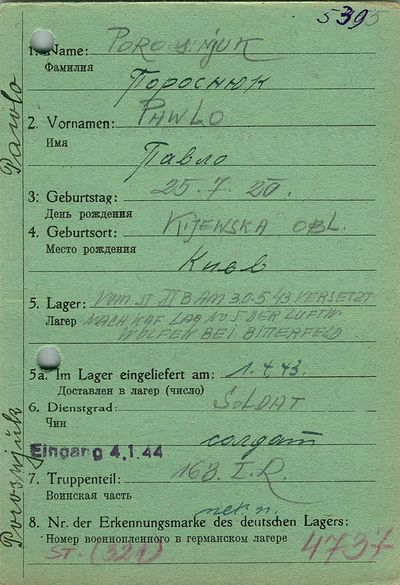 5395
1. Name: POROSNJUK
Фамилия
Пороснюк
2. Vornamen: PAWLO
Имя
Павло
3: Geburtstag: 25. 7. 20.
День рождения
4. Geburtsort: KIJEWSKA OBL.
Место рождения
Киев
5. Lager: VOM ST III B AM 30.5 43 VERSETZT
Лагер NACH KGF LAG NO 5 DER LUFTW.
WOLFEN BEI BITTERFELD
5a. Im Lager eingeliefert am: 1. 4. 43.
Доставлен в лагер (число)
6. Dienstgrad: SOLDAT
Чин
солдат
Eingang 4.1.44
7. Truppenteil: 163. I. R.
Воинская часть
8. Nr. der Erkennungsmarke des deutschen Lagers:
Номер военнопленного в германском лагере
ST. (321) 4737
Porosnjuk Pawlo